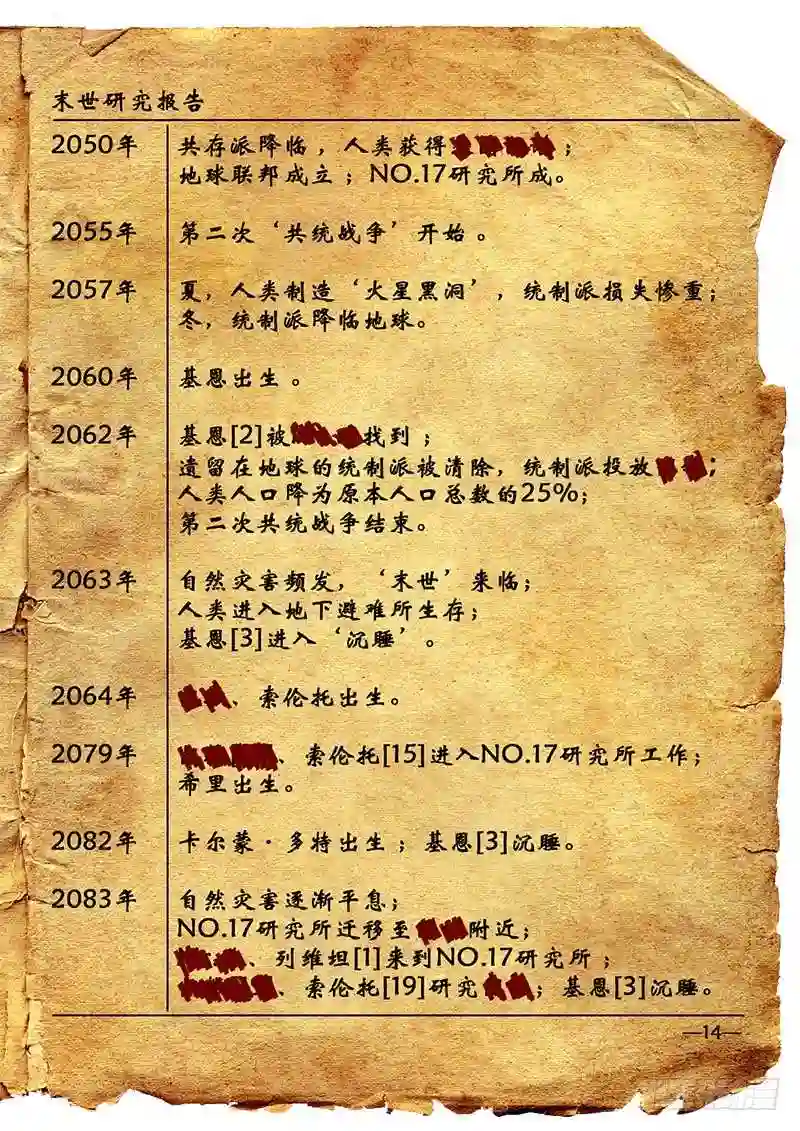 末世研究报告
2050年 共存派降临，人类获得；
地球联邦成立；NO.17研究所成。
2055年 第二次‘共统战争’开始。
2057年 夏，人类制造‘火星黑洞’，统制派损失惨重；
冬，统制派降临地球。
2060年 基恩出生。
2062年 基恩[2]被找到；
遗留在地球的统制派被清除，统制派投放；
人类人口降为原本人口总数的25%；
第二次共统战争结束。
2063年 自然灾害频发，‘末世’来临；
人类进入地下避难所生存；
基恩[3]进入‘沉睡’。
2064年 、索伦托出生。
2079年 、索伦托[15]进入NO.17研究所工作；
希里出生。
2082年 卡尔蒙·多特出生；基恩[3]沉睡。
2083年 自然灾害逐渐平息；
NO.17研究所迁移至附近；
、列维坦[1]来到NO.17研究所；
、索伦托[19]研究；基恩[3]沉睡。
—14—